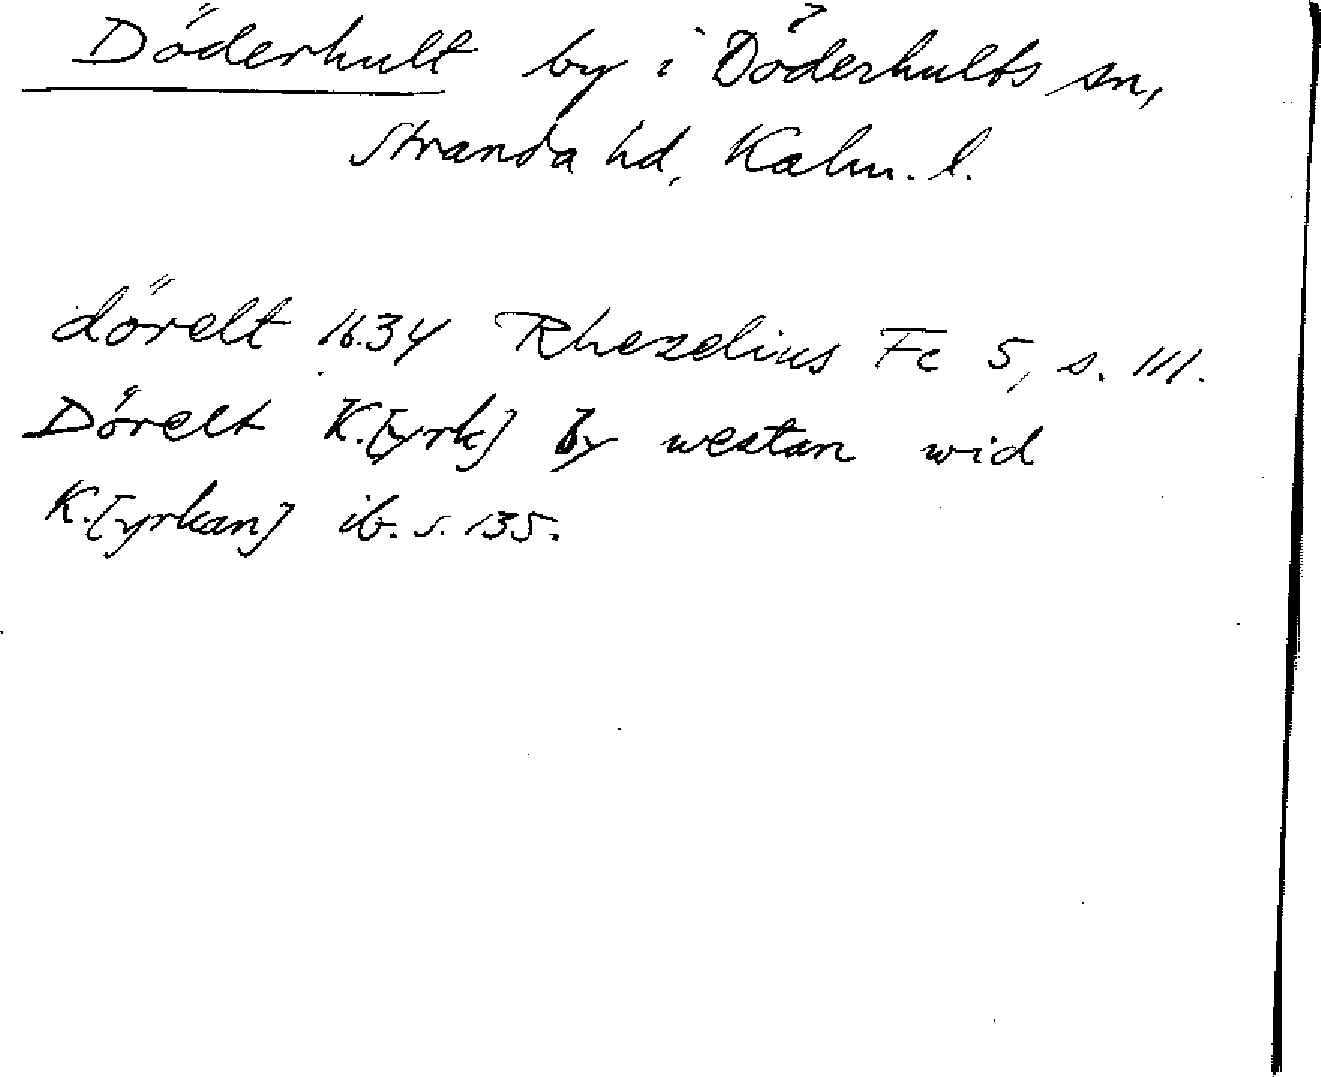 Döderhult by i Döderhults sn,
Stranda hd, Kalm. l.
dörelt 1634 Rhezelius Fc 5, s. 111.
Dörelt K.[yrk] By westan wid
K.[yrkan] ib. s. 135.